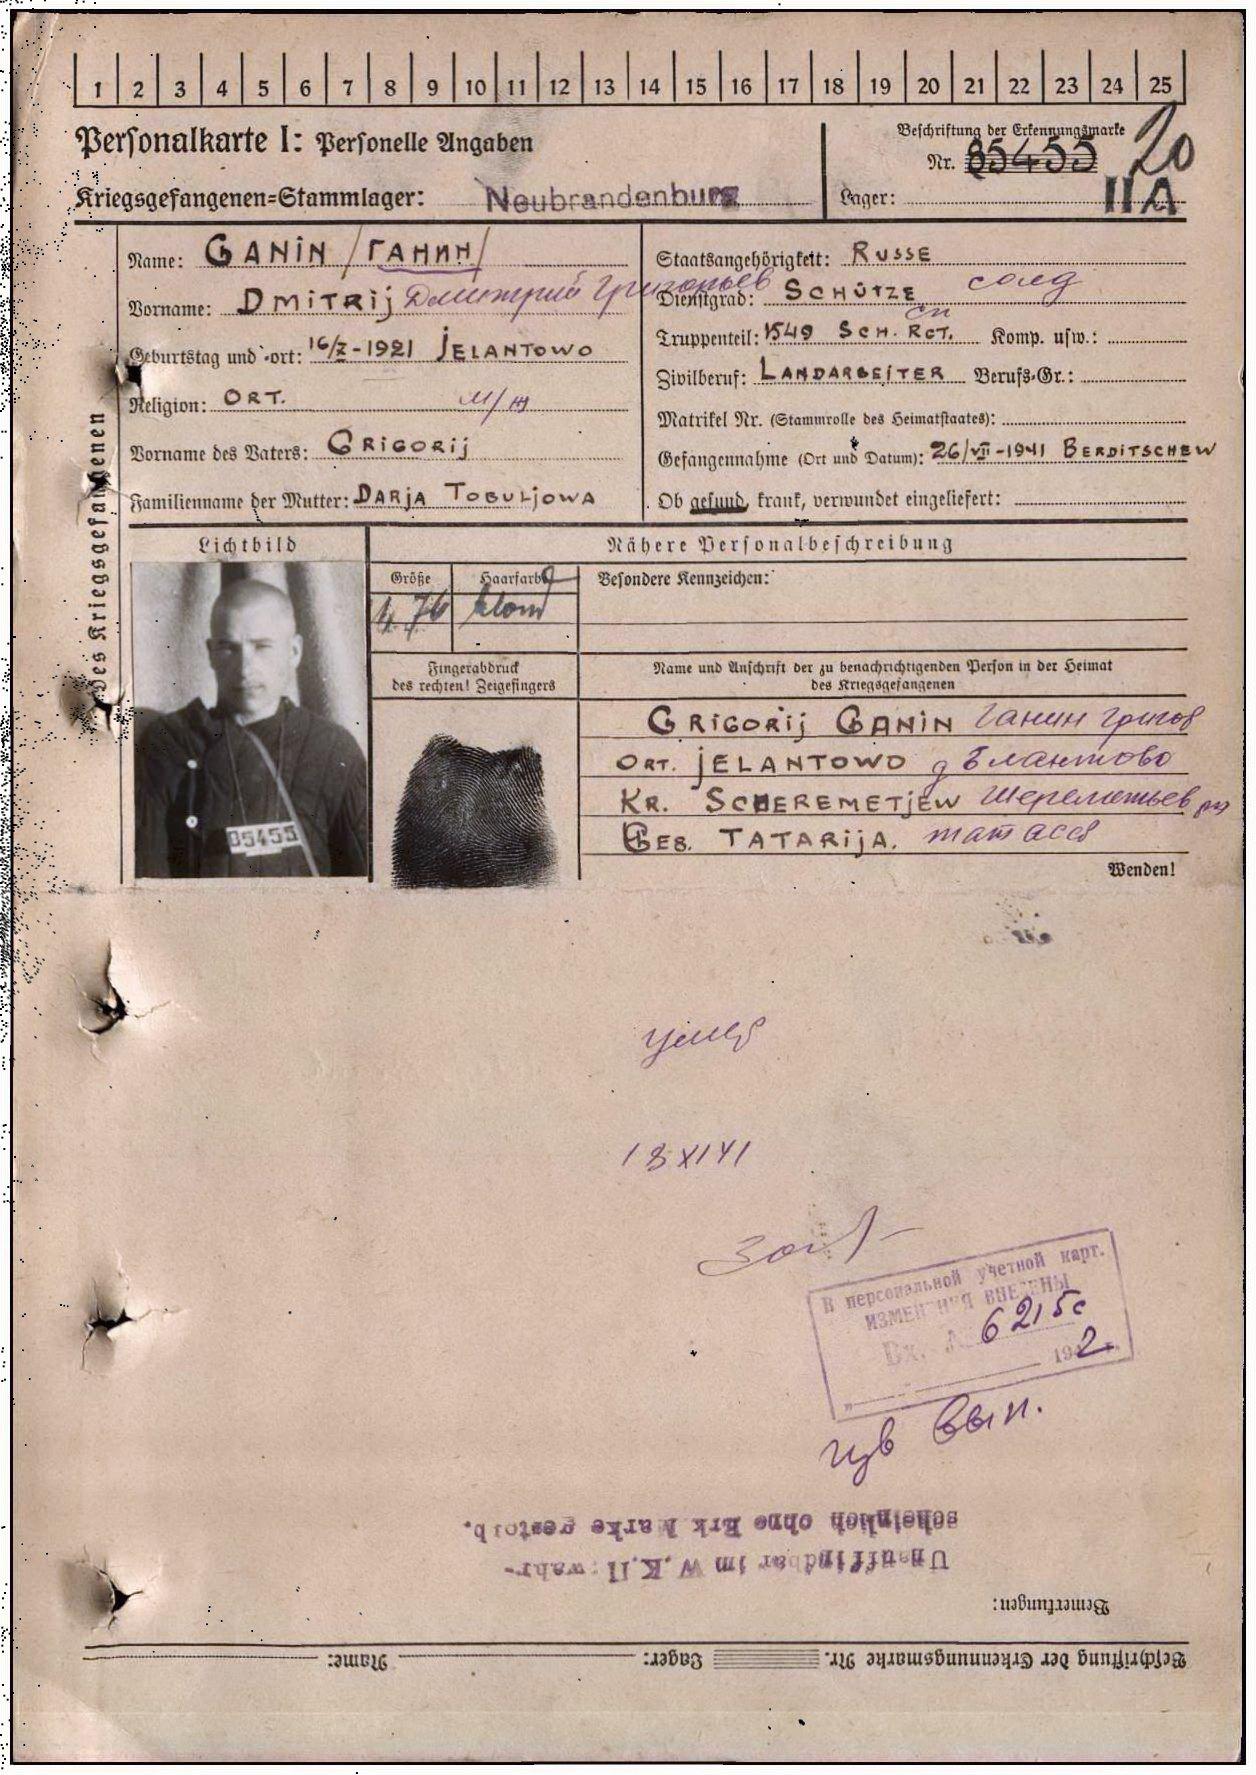 1 2 3 4 5 6 7 8 9 10 11 12 13 14 15 16 17 18 19 20 21 22 23 24 25
Personalkarte I: Personelle Angaben
Beschriftung der Erkennungsmarke
Nr. 85455 20
Kriegsgefangenen=Stammlager: Neubrandenburg
Lager: IIA
des Kriegsgefangenen
Name: GANIN /ГАНИН/
Vorname: DMITRIJ Дмитрий Григорьев
Geburtstag und -ort: 16/X-1921 JELANTOWO
Religion: ORT.
Vorname des Vaters: GRIGORIJ
Familienname der Mutter: DARJA TOBULJOWA
Staatsangehörigkeit: RUSSE
Dienstgrad: SCHÜTZE солд
Truppenteil: 1549 SCH. RGT. сп Komp. usw.:
Zivilberuf: LANDARBEITER Berufs-Gr.:
Matrikel Nr. (Stammrolle des Heimatstaates):
Gefangennahme (Ort und Datum): 26/VII-1941 BERDITSCHEW
Ob gesund, krank, verwundet eingeliefert:
Lichtbild
Nähere Personalbeschreibung
Größe
Haarfarbe
Besondere Kennzeichen:
1,76
blond
Fingerabdruck
des rechten! Zeigefingers
Name und Anschrift der zu benachrichtigenden Person in der Heimat
des Kriegsgefangenen
GRIGORIJ GANIN Ганин Григор
ORT. JELANTOWO д Елантово
KR. SCHEREMETJEW Шереметьев
GEB. TATARIJA.
85455
Wenden!
18 XI 41
В персональной учетной карт.
ИЗМЕНЕНИЯ ВНЕСЕНЫ
Вх. № 6215с
1942 г.
Unauffindbar im W.K.II: wahr-
scheinlich ohne Erk Marke gestorb.
Bemerkungen:
Beschriftung der Erkennungsmarke Nr. Lager: Name: